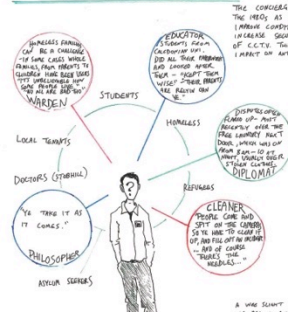 THE CONCIERGE
THE 1980s AS
IMPROVE CONDIT
INCREASE SECU
OF C.C.T.V. TOO
IMPACT ON ANT
HOMELESS FAMILIES
CAN BE A CHALLENGE
- IN SOME CASES WHOLE
FAMILIES, FROM PARENTS TO
CHILDREN HAVE BEEN USERS
"IT'S UNBELIEVABLE HOW
SOME PEOPLE LIVE"
WARDEN
EDUCATOR
STUDENTS FROM
CALEDONIAN UNI.
DID ALL THEIR
AND LOOKED AFTER
THEM - KEPT THEM
THEIR PARENTS
ARE RELYIN ON
YE."
STUDENTS
HOMELESS
LOCAL TENANTS
DOCTORS (STOBHILL)
REFUGEES
ASYLUM SEEKERS
DISPUTES OFTEN
FLARE UP - MOST
RECENTLY OVER THE
FREE LAUNDRY NEXT
DOOR, WHICH WAS ON
FROM 8AM - 10 AT
NIGHT, USUALLY OVER
STOLEN CLOTHES.
DIPLOMAT
"YE TAKE IT AS
IT COMES."
PHILOSOPHER
CLEANER
"PEOPLE COME AND
SPIT ON THE CAMERAS
SO YE HAVE TO CLEAN IT
UP, AND FILL OUT AN INCIDENT
... AND OF COURSE
THERE'S THE
NEEDLES..."
?